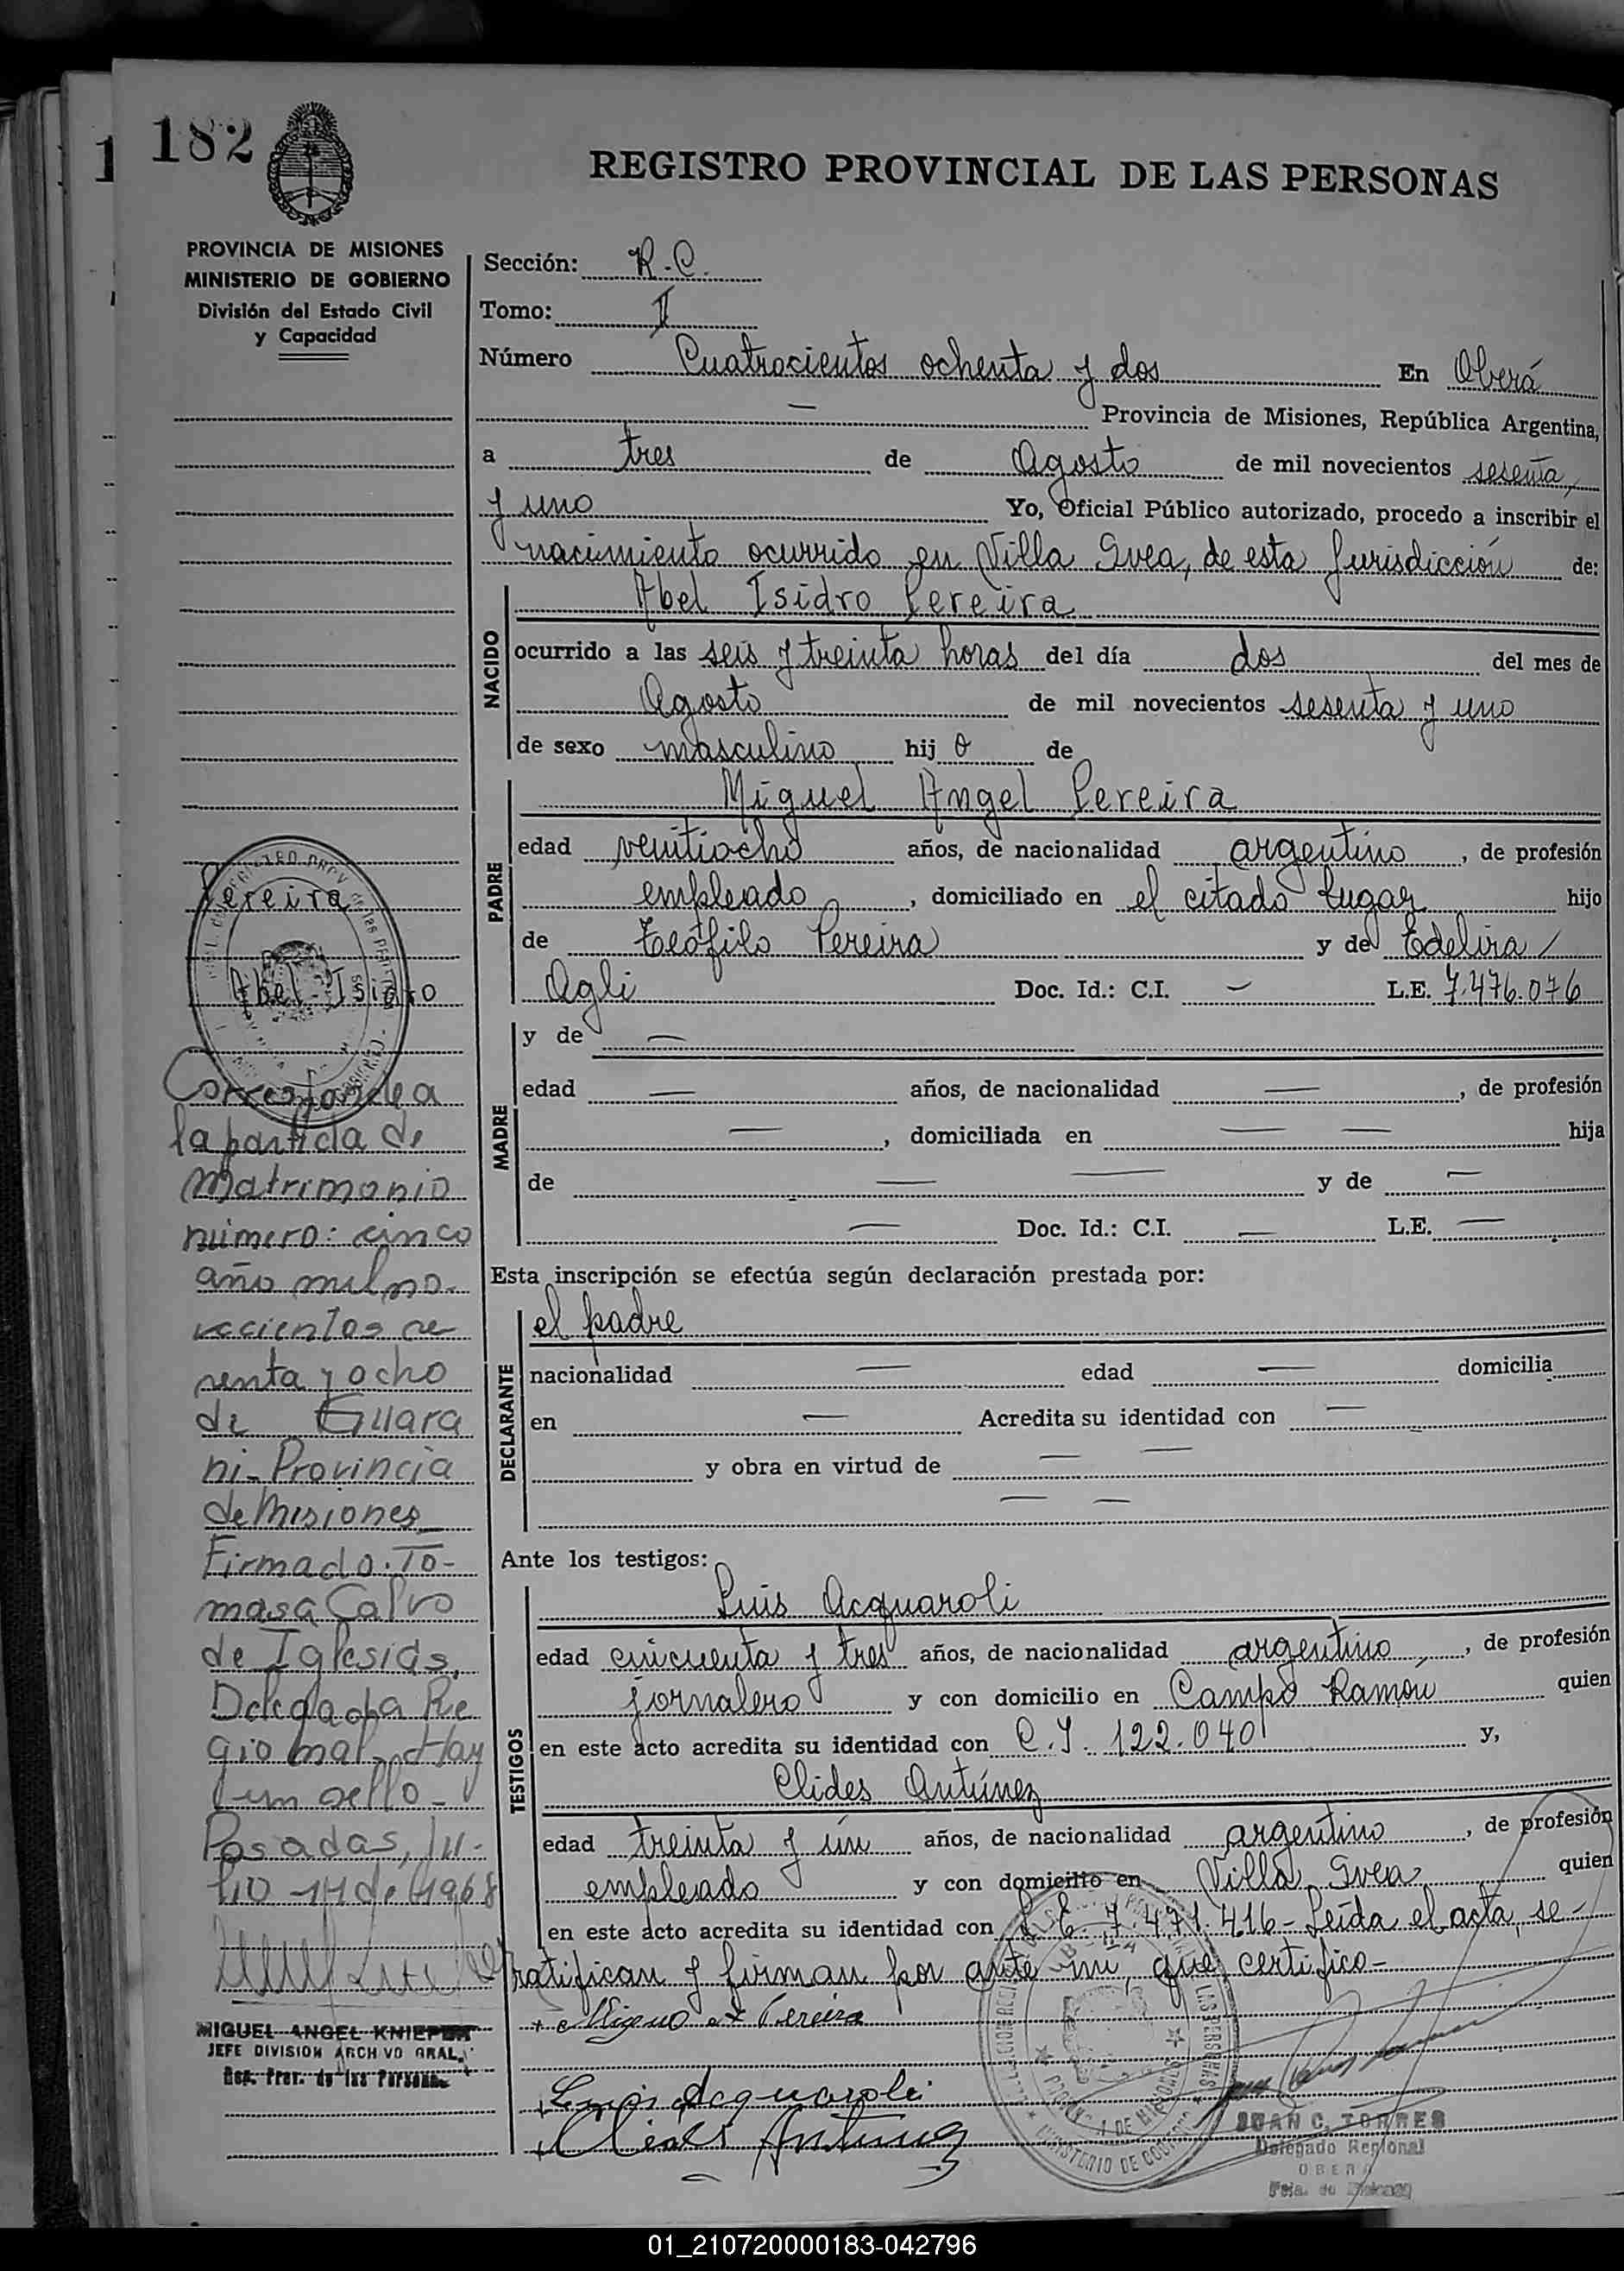 182
REGISTRO PROVINCIAL DE LAS PERSONAS
PROVINCIA DE MISIONES
MINISTERIO DE GOBIERNO
División del Estado Civil
y Capacidad
Sección: R.C.
Tomo: II
Número Cuatrocientos ochenta y dos En Oberá
Provincia de Misiones, República Argentina,
a tres de Agosto de mil novecientos sesenta
y uno Yo, Oficial Público autorizado, procedo a inscribir el
nacimiento ocurrido en Villa Svea, de esta Jurisdicción de:
NACIDO
Abel Isidro Pereira
ocurrido a las seis y treinta horas del día dos del mes de
Agosto de mil novecientos sesenta y uno
de sexo masculino hij o de
PADRE
Miguel Angel Pereira
edad venitiocho años, de nacionalidad argentino, de profesión
empleado, domiciliado en el citado lugar hijo
de Teófilo Pereira y de Edelira
Ogli Doc. Id.: C.I. — L.E. 7.476.076
MADRE
y de —
edad — años, de nacionalidad —, de profesión
—, domiciliada en — — hija
de — — y de —
— Doc. Id.: C.I. — L.E. —
Esta inscripción se efectúa según declaración prestada por:
DECLARANTE
el padre
nacionalidad — edad — domicilia
en — Acredita su identidad con —
y obra en virtud de — —
— —
Ante los testigos:
TESTIGOS
Luis Acquaroli
edad cincuenta y tres años, de nacionalidad argentino, de profesión
jornalero y con domicilio en Campo Ramón quien
en este acto acredita su identidad con C.I. 122.040 y,
Clides Antúnez
edad treinta y ún años, de nacionalidad argentino, de profesión
empleado y con domicilio en Villa Svea quien
en este acto acredita su identidad con L.E. 7.471.416- Leída el acta, se-
ratifican y firman por ante mi, que certifico-
Miguel A. Pereira
Luis Acquaroli
Clides Antunez
JUAN C. TORRES
Delegado Regional
OBERA
Pcia. de Misiones
Pereira
Abel Isidro
Corresponde a
la partida de
matrimonio
número: cinco
año mil no-
vecientos se-
senta y ocho
de Guara
ni-Provincia
de Misiones
Firmado. To-
masa Calvo
de Iglesias,
Delegada Re
gional. Hay
un sello-
Posadas, Ju-
lio 17 de 1968
MIGUEL ANGEL KNIEPER
JEFE DIVISION ARCHIVO GRAL.
Reg. Prov. de las Personas
01_210720000183-042796